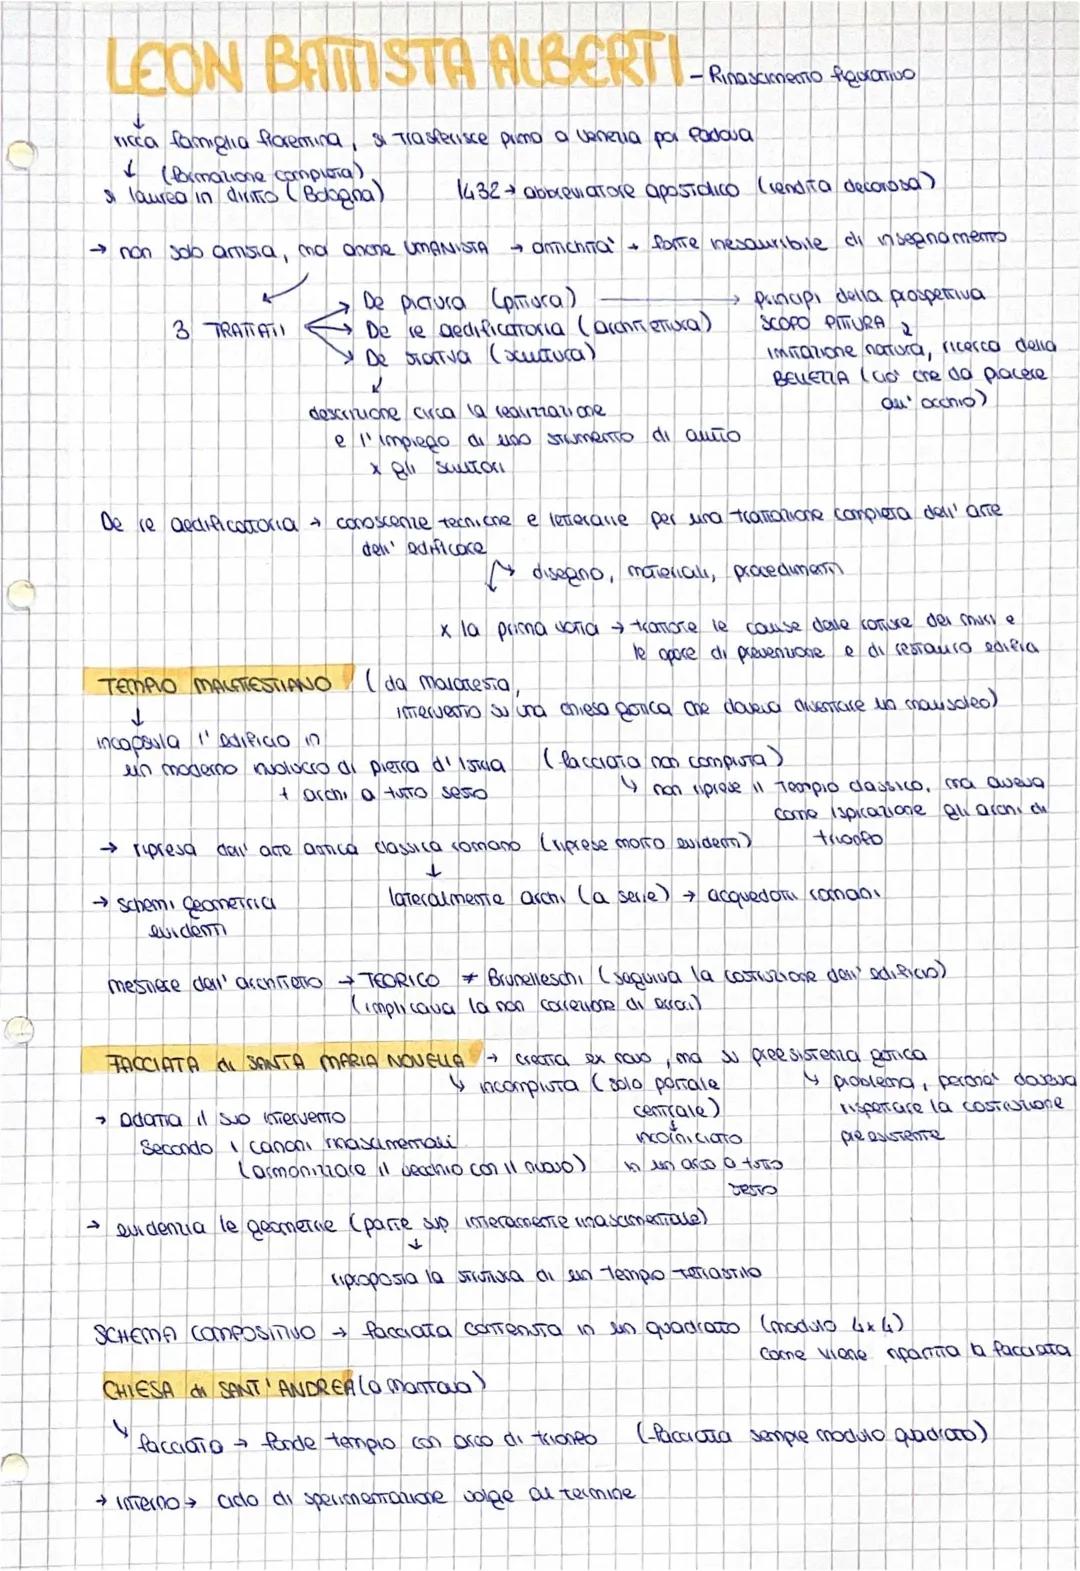 LEON BATTISTA ALBERTI - Rinascimento figurativo
↓
ricca famiglia fiorentina, si trasferisce prima a Venezia poi Padova
↓ (formazione completa)
si laurea in diritto (Bologna) 1432 → abbreviatore apostolico (rendita decorosa)
→ non solo artista, ma anche UMANISTA → antichità → fonte inesauribile di insegnamento
3 TRATTATI
→ De pictura (pittura) → principi della prospettiva
→ De re aedificatoria (architettura) SCOPO PITTURA
→ De statua (scultura) imitazione natura, ricerca della
BELLEZZA (ciò che dà piacere
all'occhio)
↓
descrizione circa la realizzazione
e l'impiego di uno strumento di aiuto
x gli scultori
De re aedificatoria → conoscenze tecniche e letterarie per una trattazione completa dell'arte
dell'edificare
→ disegno, materiali, procedimenti
x la prima volta → trattare le cause delle rotture dei muri e
le opere di prevenzione e di restauro edifici
TEMPIO MALATESTIANO (da Malatesta,
intervento su una chiesa gotica che doveva diventare un mausoleo)
↓
incapsula l'edificio in
un moderno involucro di pietra d'Istria (facciata non compiuta)
+ archi a tutto sesto ↳ non riprese il Tempio classico, ma aveva
come ispirazione gli archi di
trionfo
→ ripresa dall'arte antica classica romana (riprese molto evidenti)
↓
lateralmente archi (a serie) → acquedotti romani
→ schemi geometrici
evidenti
mestiere dell'architetto → TEORICO ≠ Brunelleschi (seguiva la costruzione dell'edificio)
(implicava la non correzione di errori)
FACCIATA di SANTA MARIA NOVELLA → creata ex novo, ma su preesistenza gotica
↳ incompiuta (solo portale
centrale)
↓
incorniciato
in un arco a tutto
sesto
↳ problema, perché doveva
rispettare la costruzione
preesistente
→ adatta il suo intervento
secondo i canoni rinascimentali
(armonizzare il vecchio con il nuovo)
→ evidenzia le geometrie (parte sup interamente rinascimentale)
↓
riproposta la struttura di un tempio tetrastilo
SCHEMA COMPOSITIVO → facciata contenuta in un quadrato (modulo 4x4)
come viene ripartita la facciata
CHIESA di SANT'ANDREA (a Mantova)
↳ facciata → fonde tempio con arco di trionfo (facciata sempre modulo quadrato)
→ interno → ciclo di sperimentazione volge al termine